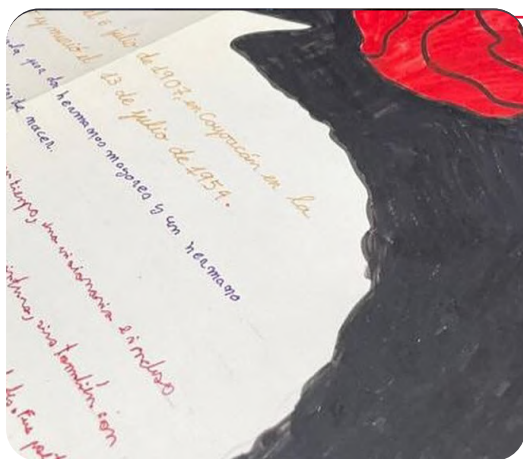 6 julio de 1907, en Coyoacán en la
y murió el 13 de julio de 1954.
por dos hermanas mayores y un hermano
de nacer.
tiempo, una visionaria e incluso
sino también con
Fue